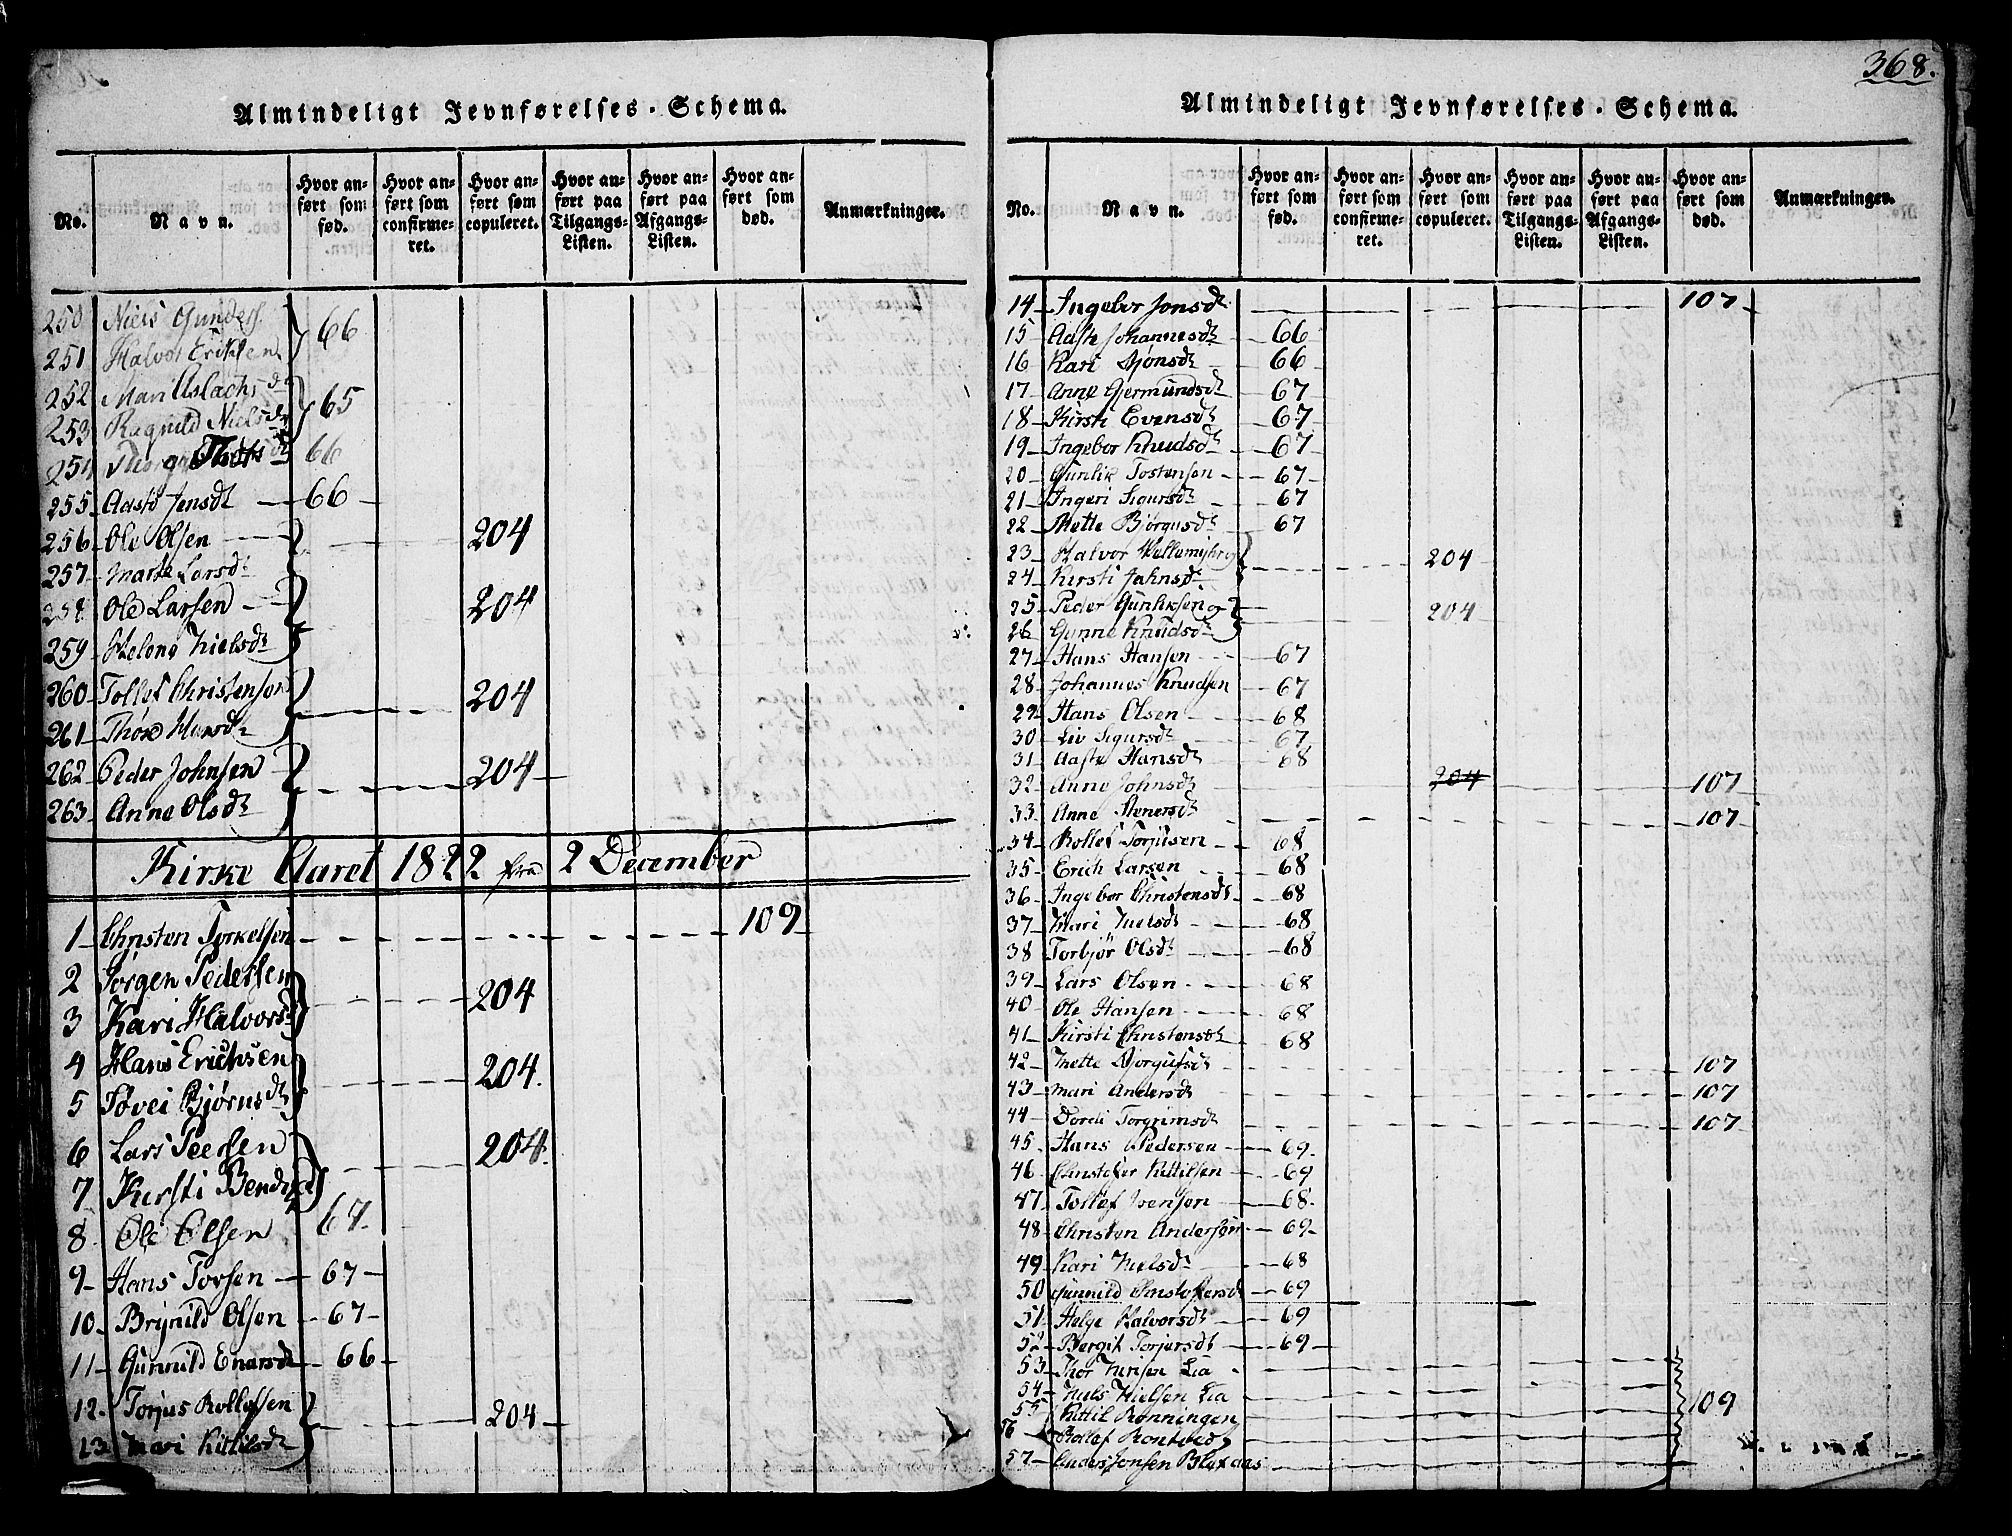 368.
Almindeligt Jevnførelses-Schema.
No. Navn. Hvor anført som fød. Hvor anført som confirmeret. Hvor anført som copuleret. Hvor anført paa Tilgangs-Listen. Hvor anført paa Afgangs-Listen. Hvor anført som død. Anmærkninger.
250 Niels Gunders.
251 Halvor Eriksen } 66
252 Mari Aslachsdr
253 Ragnild Nielsdr } 65
254 66
255 Aaste Jensdt 66
256 Ole Olsen 204
257 Marte Larsdt
258 Ole Larsen 204
259 Helene Nielsdt
260 Tollef Christensen 204
261 Thore Hansdt
262 Peder Johnsen 204
263 Anne Olsdt
Kirke Aaret 1822 fra 2 December
1 Christen Torkelsen 109
2 Jørgen Pedersen
3 Kari Halvorsdt } 204
4 Hans Erichsen
5 Søvei Bjørnsdt } 204.
6 Lars Peersen 204.
7 Kirsti
8 Ole Olsen 67
9 Hans Torsen 67
10 Brynild Olsen 67
11 Gunnild Enarsdt 66
12 Torjus Rollefsen 204
13 Mari Kittilsdt
Almindeligt Jevnførelses-Schema.
No. Navn. Hvor anført som fød. Hvor anført som confirmeret. Hvor anført som copuleret. Hvor anført paa Tilgangs-Listen. Hvor anført paa Afgangs-Listen. Hvor anført som død. Anmærkninger.
14 Ingebor Jonsdt 107
15 Aaste Johannesdt 66
16 Kari Bjønsdt 66
17 Anne Gjermundsdt 67
18 Kirsti Evensdt 67
19 Ingebor Knudsdt 67
20 Gunlik Tostensen 67
21 Ingeri Sigursdt 67
22 Mette Bjørgusdt 67
23 Halvor Hellemyhr og
24 Kirsti Jahnsdt } 204
25 Peder Gunliksen og 204
26 Gunne Knudsdt
27 Hans Hansen 67
28 Johannes Knudsen 67
29 Hans Olsen 68
30 Liv Sigursdt 67
31 Aaste Hansdt 68
32 Anne Johnsdt 204 107
33 Anne Stenersdt 107
34 Rollef Torjusen 68
35 Erich Larsen 68
36 Ingebor Christensdt 68
37 Mari Nielsdt 68
38 Torbjør Olsdt 68
39 Lars Olsen 68
40 Ole Hansen 68
41 Kirsti Christensdt 68
42 Mette Bjorgufsdt 107
43 Mari Andersdt 107
44 Dordi Torgrimsdt 107
45 Hans Pedersen 69
46 Christofer Kittilsen 69
47 Tollef Ivensen 68
48 Christen Andersen 69
49 Kari Nielsdt 68
50 Gunnild Christofersdt 69
51 Helge Halvorsdt 69
52 Bergit Torjersdt 69
53 Thor Lia
54 Niels Nielsen Lia
55 Kittil Rønningen 109
56 Rollef
57 Anders Jonsen